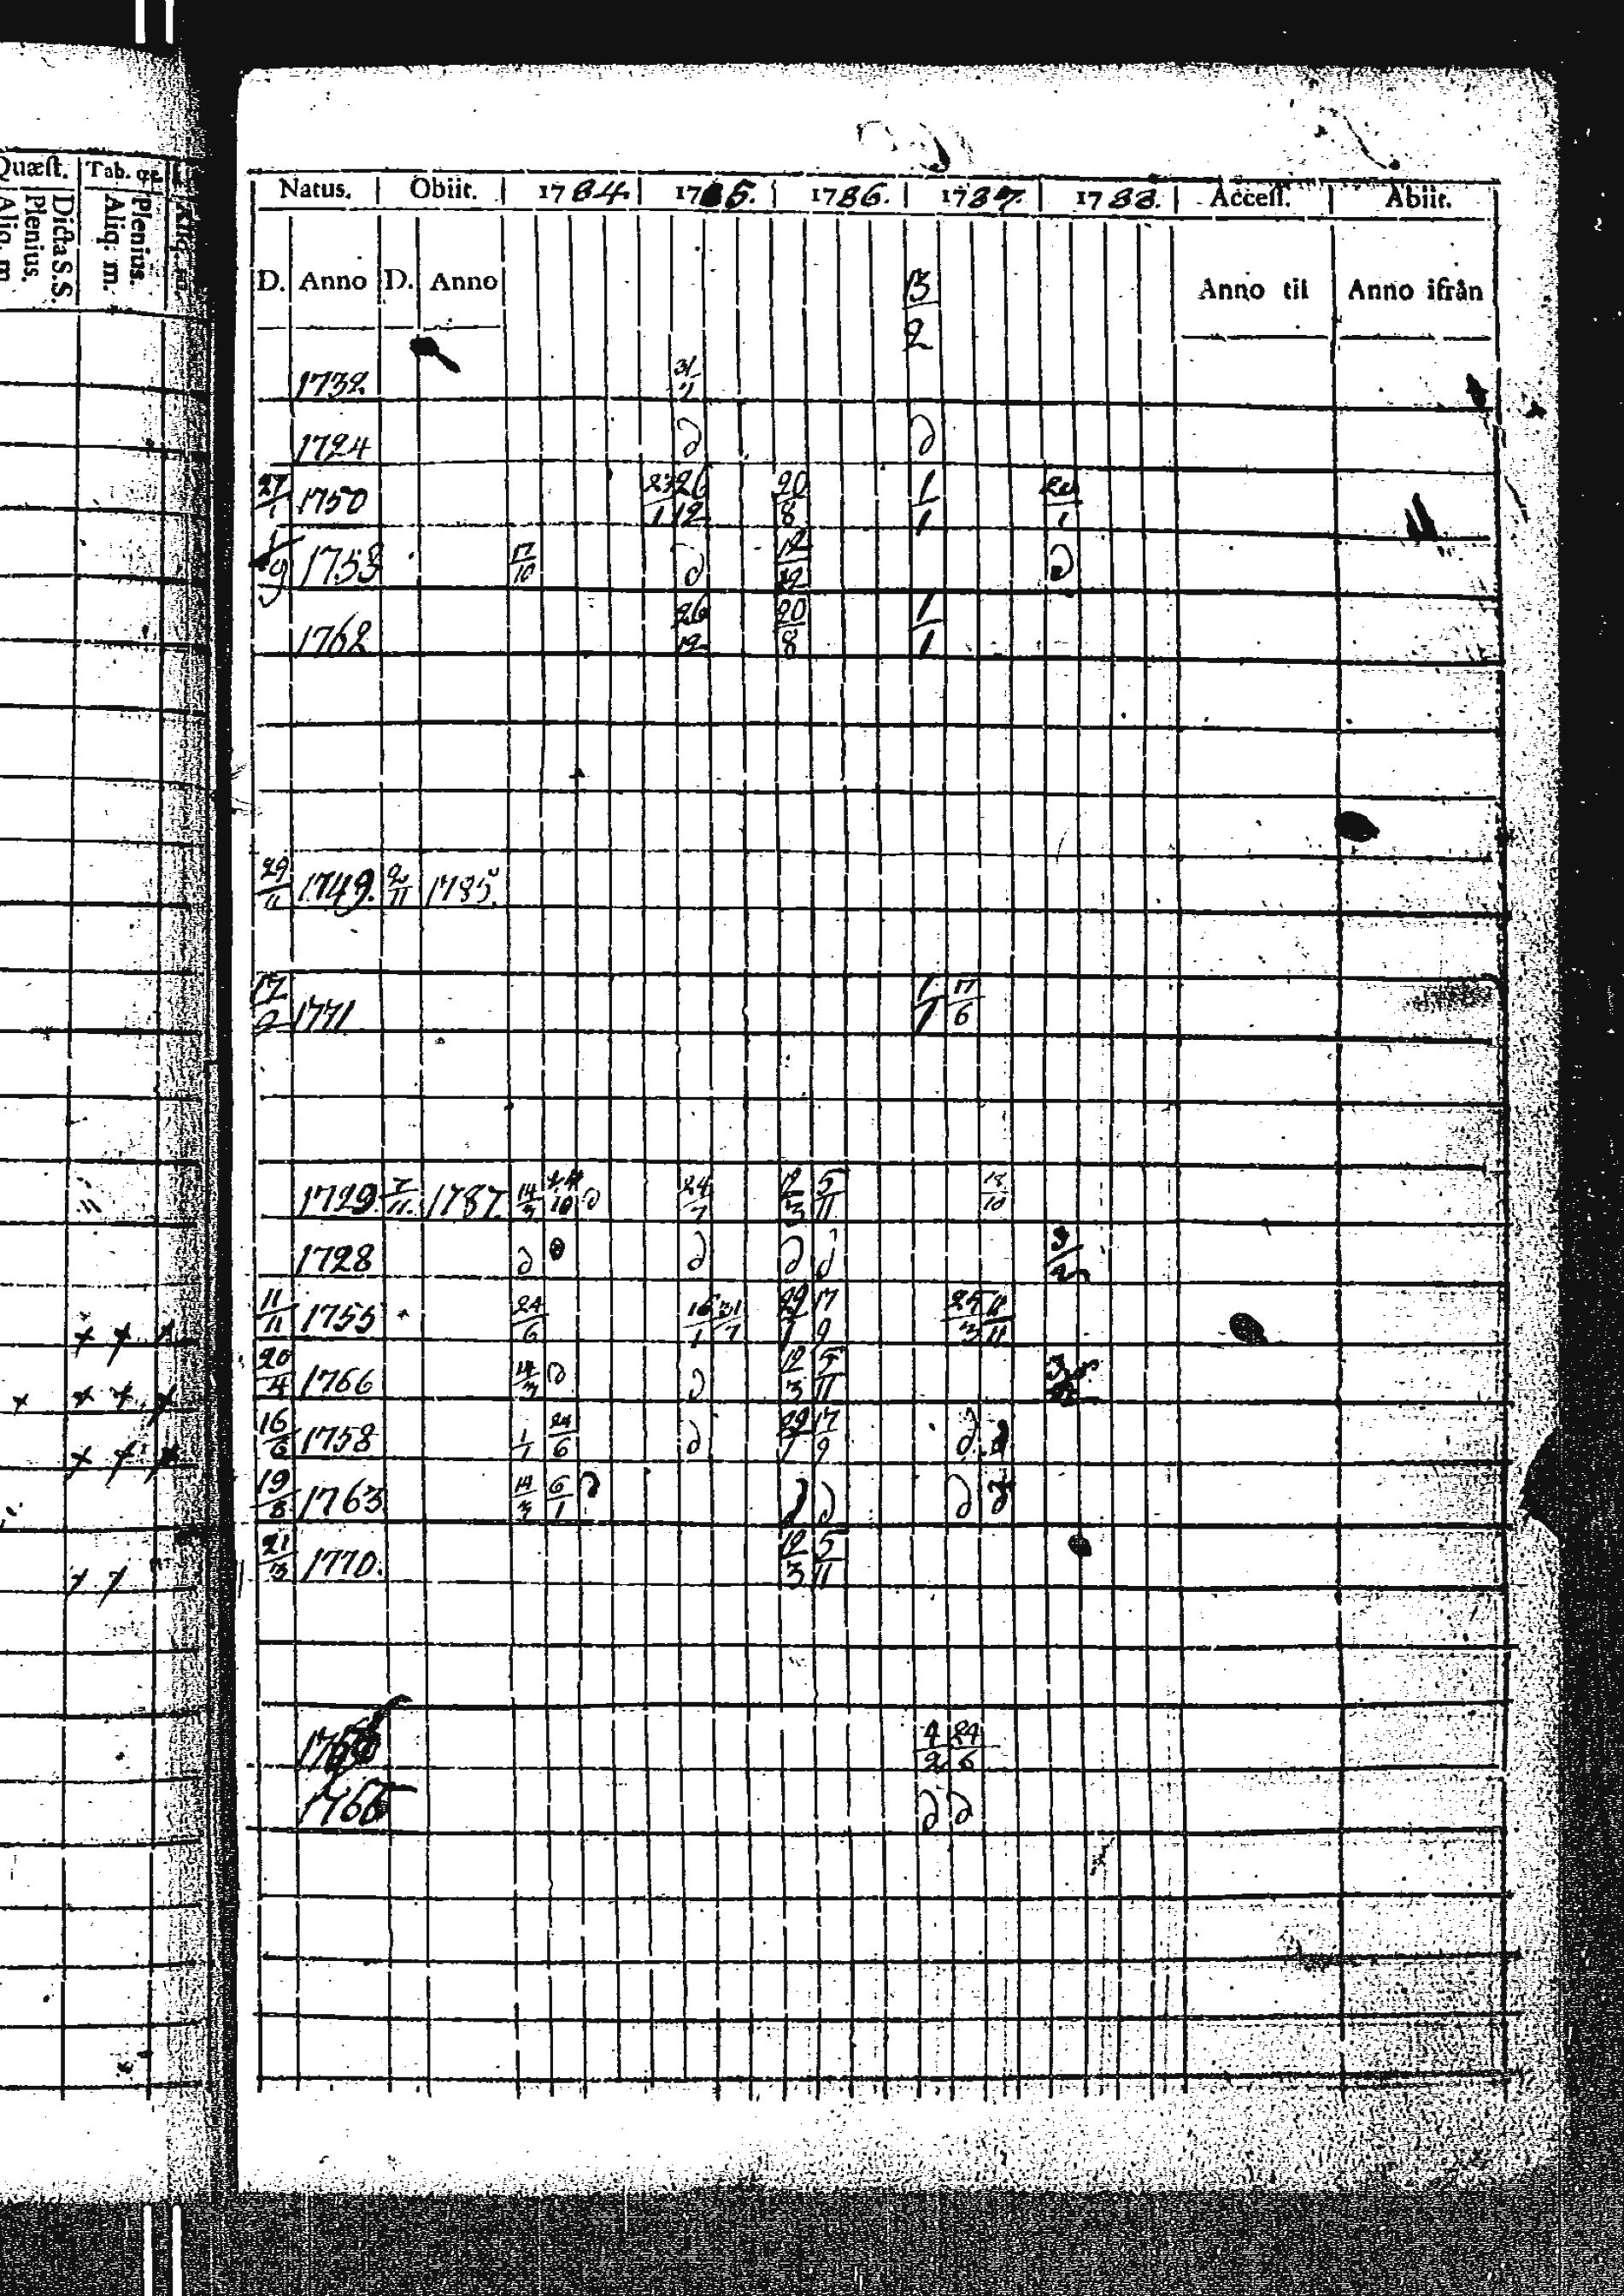 Quæst. Tab. œc.
Dicta S. S.
Plenius.
Aliq. m.
Plenius.
Aliq. m.
Natus. Obiit. 1784. 1785. 1786. 1787. 1788. Access. Abiit.
D. Anno D. Anno 13/2 Anno til Anno ifrån
1732 31/7
1724 d d
27/1 1750 23/1 26/12 20/8 1/1 20/1
1/9 1753 17/10 d 12/12 d
1762 26/12 20/8 1/1
29/11 1749. 2/11 1785.
17/2 1771 1/1 17/6
1729. 7/11. 1787. 14/3 24/10 d 24/7 12/3 5/11 18/10
1728 d d d d d
11/11 1755 24/6 16/1 31/7 29/1 17/9 25/3 11/11
20/4 1766 14/3 d d 12/3 5/11
16/6 1758 1/1 24/6 d 29/1 17/9 d d
19/8 1763 14/3 6/1 d d d d d
21/3 1770. 12/3 5/11
4/2 24/6
1766 d d